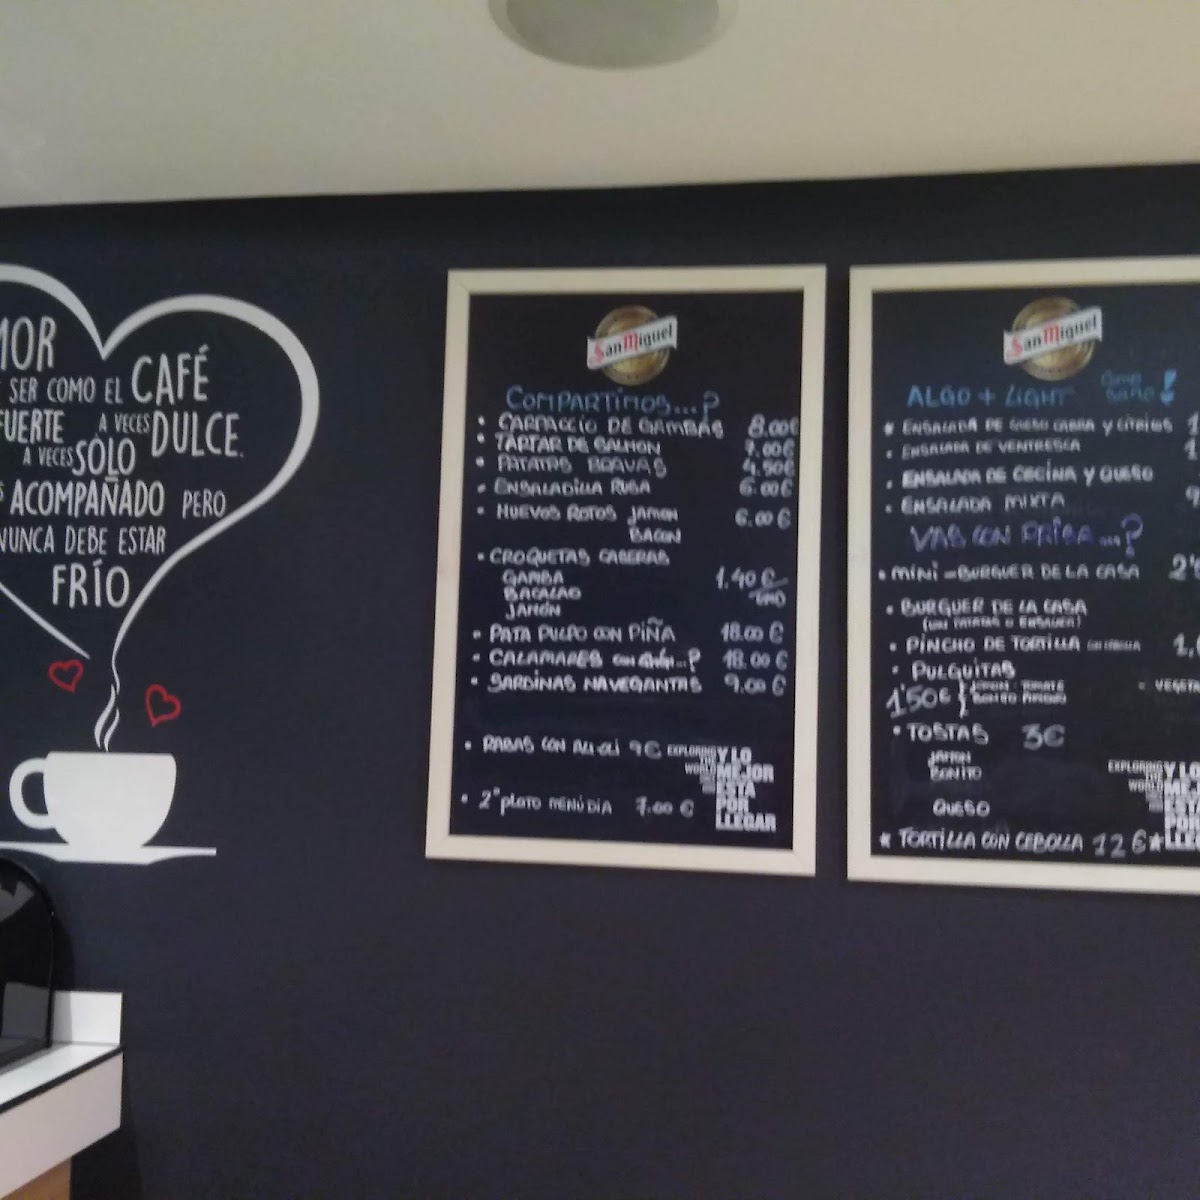 MOR
SER COMO EL CAFÉ
FUERTE A VECES DULCE.
A VECES SÓLO
ACOMPAÑADO PERO
NUNCA DEBE ESTAR
FRÍO
San Miguel
COMPARTIMOS...?
• CARPACCIO DE GAMBAS 8.00€
• TARTAR DE SALMON 7.00€
• PATATAS BRAVAS 4.50€
• ENSALADILLA RUSA 6.00€
• HUEVOS ROTOS JAMON 6.00€
BACON
• CROQUETAS CASERAS
GAMBA 1.40€
BACALAO
JAMÓN
• PATA PULPO CON PIÑA 18.00€
• CALAMARES CON ...? 18.00€
• SARDINAS NAVEGANTAS 9.00€
• RABAS CON ALI-OLI 9€
• 2º plato MENÚ DIA 7.00€
EXPLORING
THE
WORLD
Y LO
MEJOR
ESTÁ
POR
LLEGAR
San Miguel
ALGO + LIGHT
* ENSALADA DE QUESO CABRA Y CÍTRICOS 1
• ENSALADA DE VENTRESCA 1
• ENSALADA DE CECINA Y QUESO
• ENSALADA MIXTA
VAS CON PRISA...?
• MINI-BURGUER DE LA CASA 2'
• BURGUER DE LA CASA
(CON PATATAS O ENSALADA)
• PINCHO DE TORTILLA CON CEBOLLA 1,
• PULGUITAS
1'50€ { JAMON-TOMATE • VEGETA
BONITO
• TOSTAS 3€
JAMON
BONITO
QUESO
* TORTILLA CON CEBOLLA 12€*
EXPLORING
THE
WORLD
Y LO
MEJ
ESTÁ
POR
LLEG